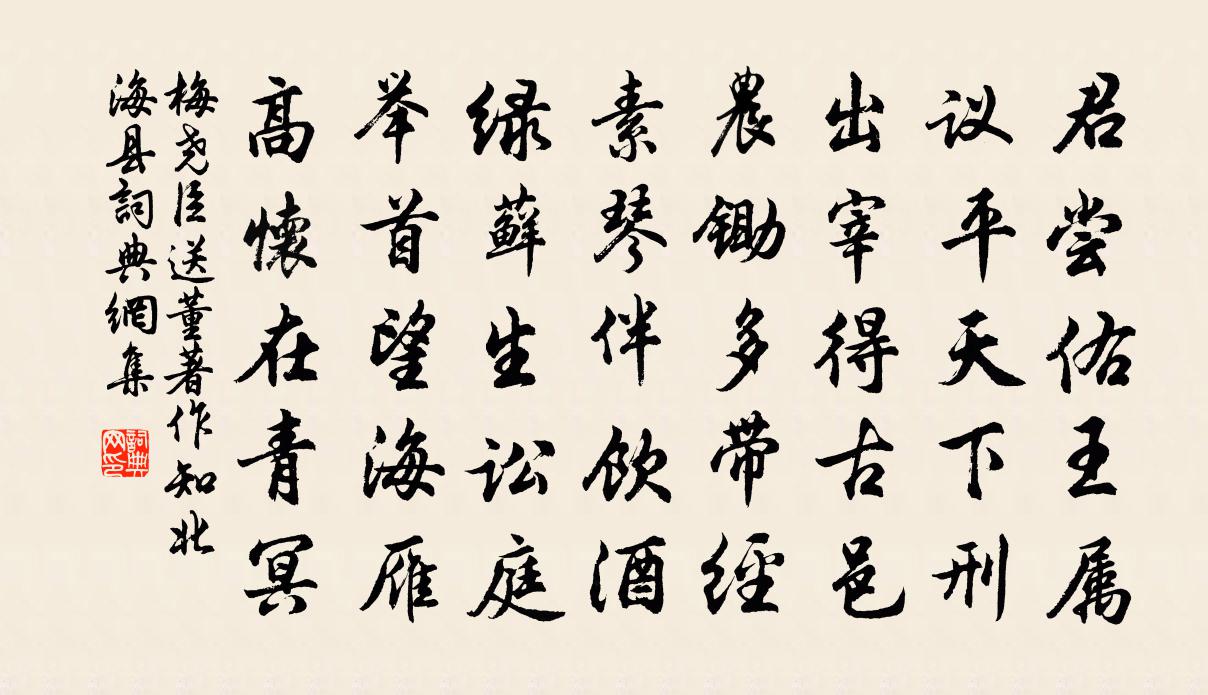 君尝佑王属
议平天下刑
出宰得古邑
農锄多带經
素琴伴饮酒
绿蘚生讼庭
举首望海雁
高懷在青冥
梅尧臣送董著作知北
海县詞典網集
詞典网印